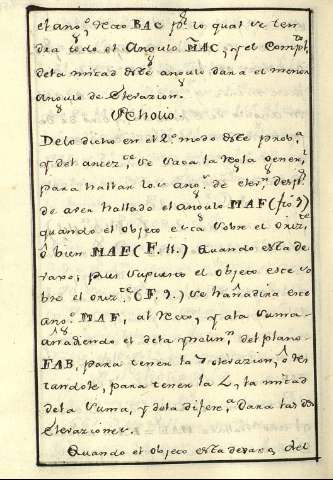 el ang.º Recto BAC p.r lo qual se ten
dra todo el Angulo MAC, y el Compl.to
dela mitad deste angulo dara el menor
Angulo de Elevazion.
Scholio.
Delo dicho en el 2.º modo deste prob.a
y del antez.te se saca la Regla gener.l
para hallar los ang.s de elev.n desp.s
de aver hallado el angulo MAF (fig 9)
quando el objeto esta sobre el orizt.e
ô bien MAF (F. 11.) Quando esta de
vaxo; pues supuesto el objeto este so
bre el orizt.te (F. 9.) se hañadira este
ang.º MAF, al Recto, y ala suma
añadiendo el dela ynclin.n del plano
FAB, para tener la elevazion, ô Res
tandole, para tener la 2, la mitad
dela suma, y dela difer.a Dara las dos
Elevaziones.
Quando el objeto esta devaxo del